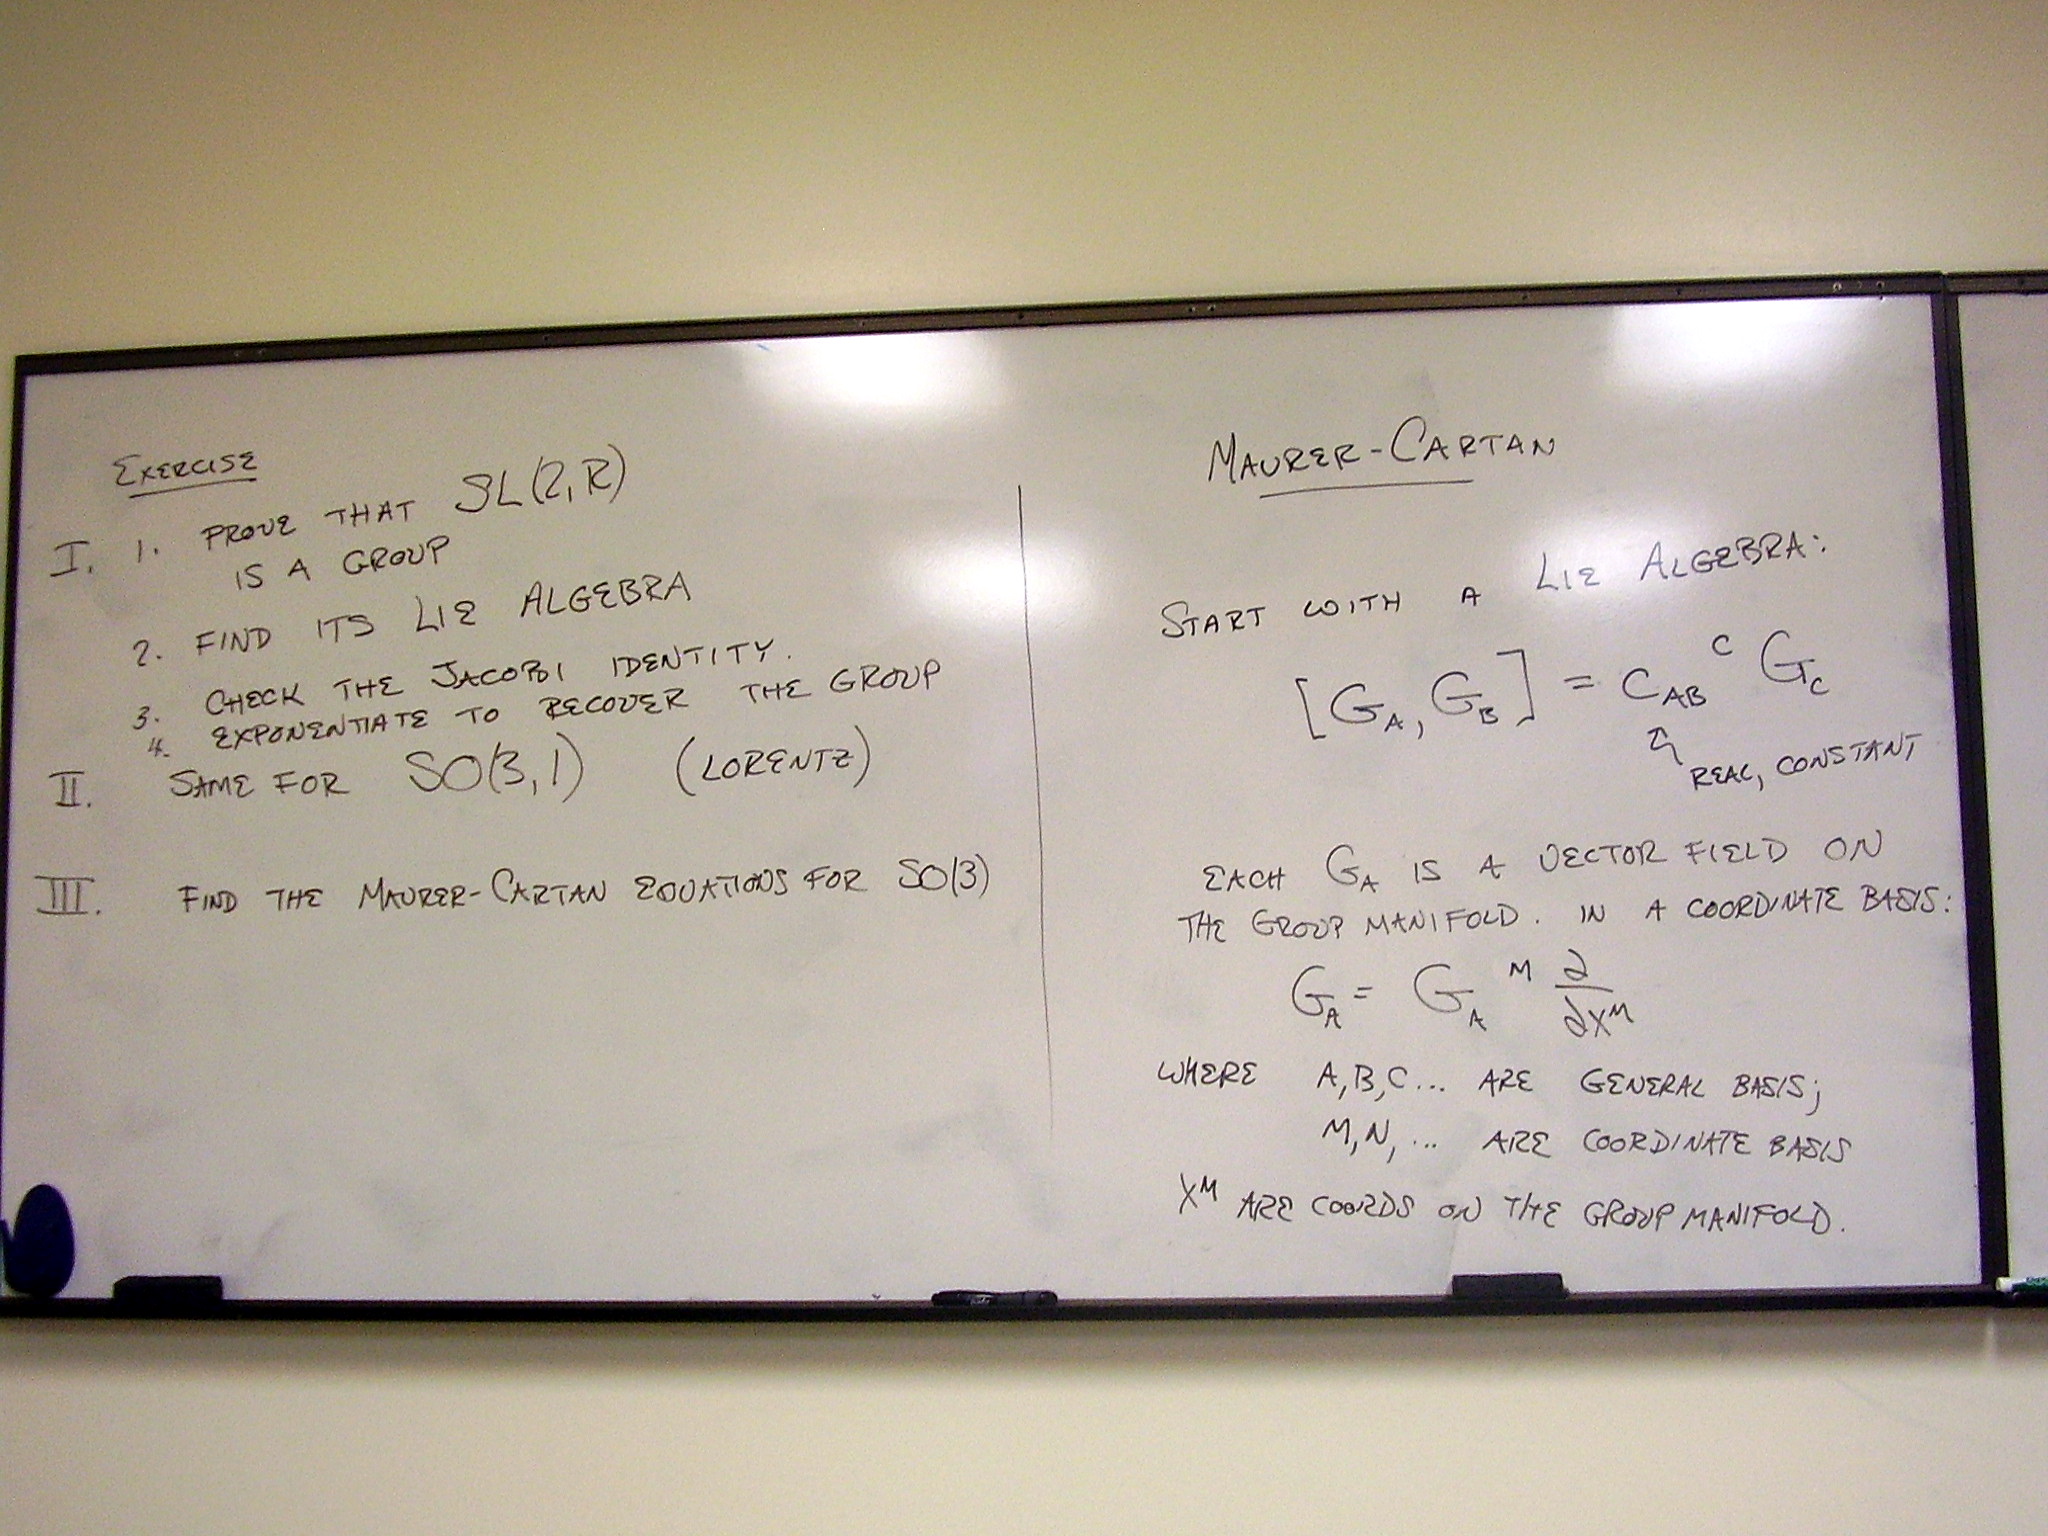 EXERCISE
I. 1. PROVE THAT SL(2,R)
IS A GROUP
2. FIND ITS LIE ALGEBRA
3. CHECK THE JACOBI IDENTITY.
4. EXPONENTIATE TO RECOVER THE GROUP
II. SAME FOR SO(3,1) (LORENTZ)
III. FIND THE MAURER-CARTAN EQUATIONS FOR SO(3)
MAURER-CARTAN
START WITH A LIE ALGEBRA:
[G_A, G_B] = C_AB^C G_C
REAL, CONSTANT
EACH G_A IS A VECTOR FIELD ON
THE GROUP MANIFOLD. IN A COORDINATE BASIS:
G_A = G_A^M ∂/∂X^M
WHERE A,B,C... ARE GENERAL BASIS;
M,N,... ARE COORDINATE BASIS
X^M ARE COORDS ON THE GROUP MANIFOLD.